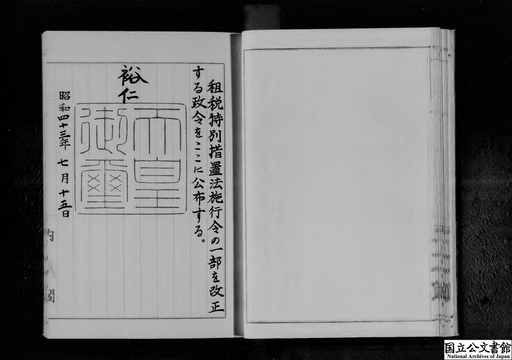 租税特別措置法施行令の一部を改正
する政令をここに公布する。
裕仁
天皇
御璽
昭和四十三年七月十五日
内閣
国立公文書館
National Archives of Japan